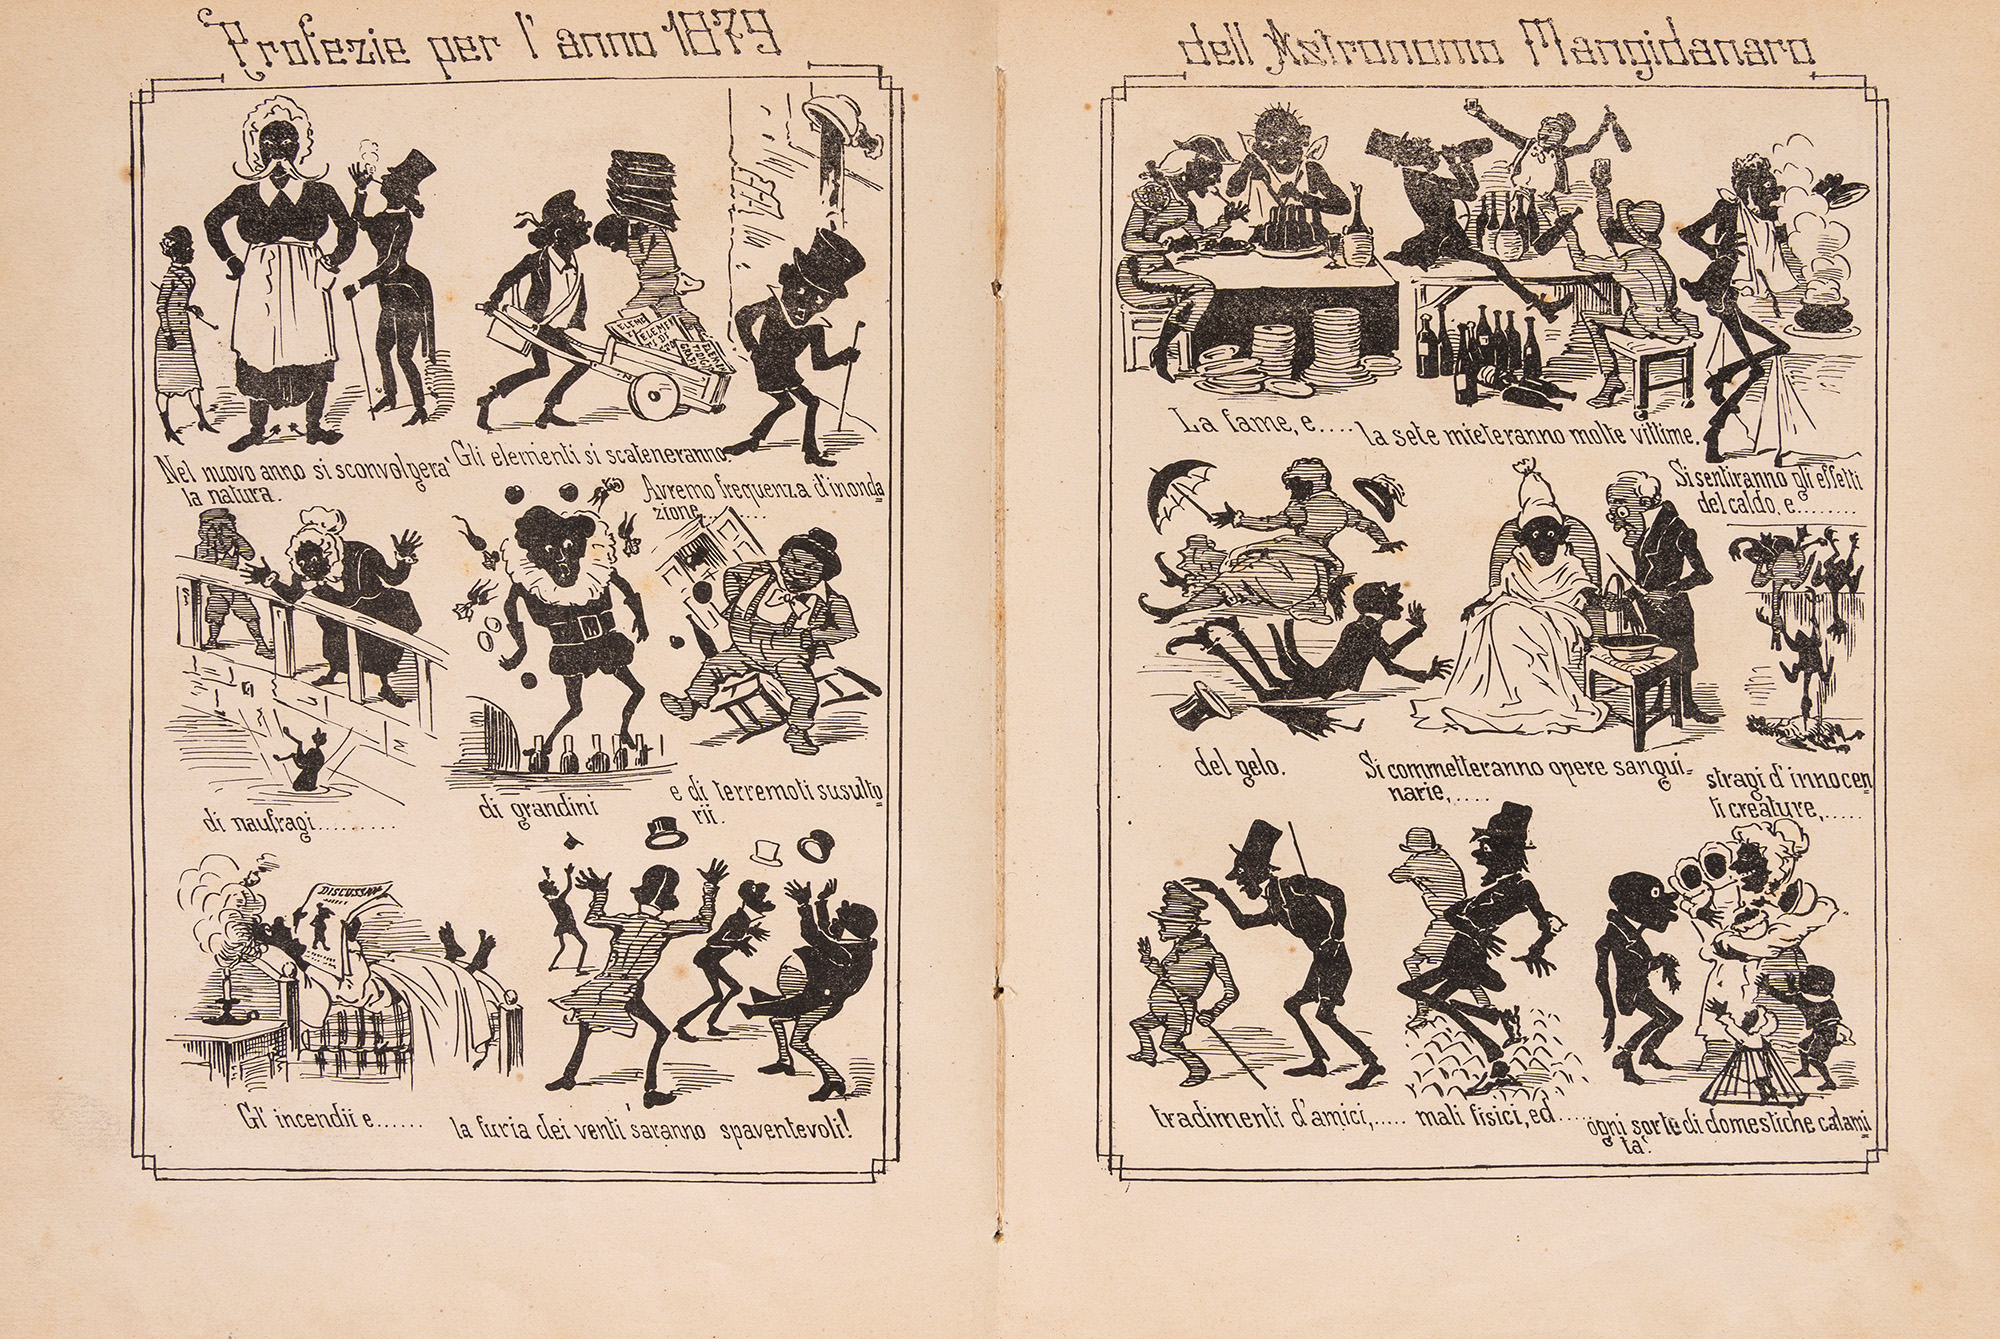 Profezie per l'anno 1879
dell'Astronomo Mangidanaro
Nel nuovo anno si sconvolgerà
la natura.
Gli elementi si scateneranno.
Avremo frequenza d'inonda=
zione,........
di naufragi..........
di grandini
e di terremoti susulto=
rii.
DISCUSSION
Gl' incendii e......
la furia dei venti saranno spaventevoli!
La fame, e....
la sete mieteranno molte vittime.
Si sentiranno gli effetti
del caldo, e........
del gelo.
Si commetteranno opere sangui=
narie,.....
stragi d'innocen=
ti creature,.....
tradimenti d'amici,.....
mali fisici, ed....
ogni sorte di domestiche calami
tà.